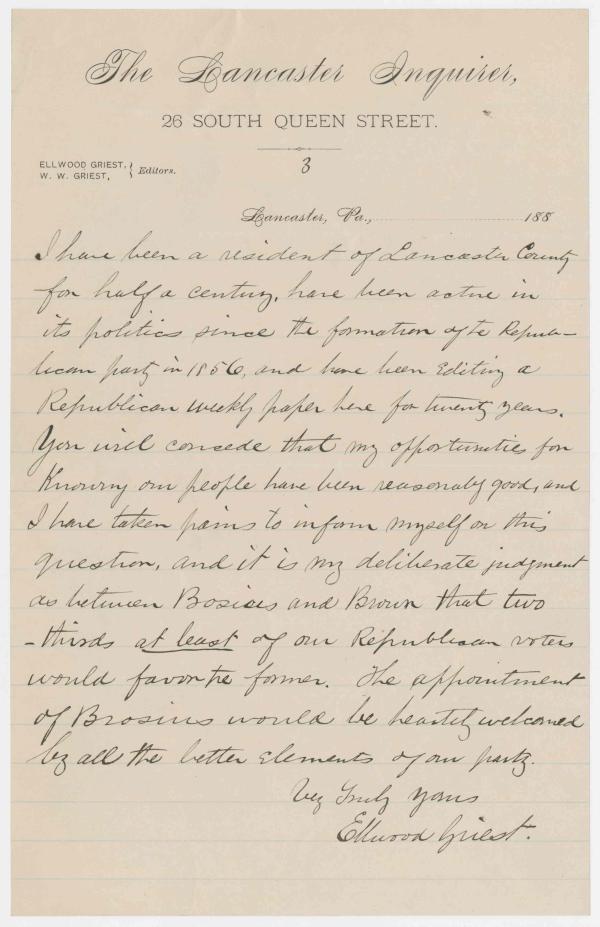 The Lancaster Inquirer,
26 SOUTH QUEEN STREET.
3
ELLWOOD GRIEST,
W. W. GRIEST,
} Editors.
Lancaster, Pa., 188
I have been a resident of Lancaster County
for half a century, have been active in
its politics since the formation of the Repub-
lican party in 1856, and have been Editing a
Republican weekly paper here for twenty years.
You will concede that my opportunities for
Knowing our people have been reasonably good, and
I have taken pains to inform myself on this
question, and it is my deliberate judgment
as between Bosius and Brown that two
-thirds at least of our Republican voters
would favor the former. The appointment
of Brosius would be heartily welcomed
by all the better Elements of our party.
Very Truly Yours
Ellwood Griest.